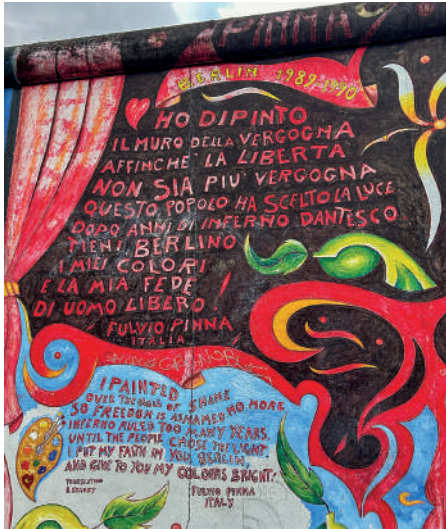 PINNA
BERLIN 1989-1990
HO DIPINTO
IL MURO DELLA VERGOGNA
AFFINCHE' LA LIBERTA
NON SIA PIU' VERGOGNA
QUESTO POPOLO HA SCELTO LA LUCE
DOPO ANNI DI INFERNO DANTESCO
TIENI BERLINO
I MIEI COLORI
E LA MIA FEDE
DI UOMO LIBERO !
! FULVIO PINNA
ITALIA
I PAINTED
OVER THE WALL OF SHAME
SO FREEDOM IS ASHAMED NO MORE
INFERNO RULED TOO MANY YEARS.
UNTIL THE PEOPLE CHOSE THE LIGHT.
I PUT MY FAITH IN YOU, BERLIN,
AND GIVE TO YOU MY COLOURS BRIGHT!
TRANSLATION
FULVIO PINNA
ITALY